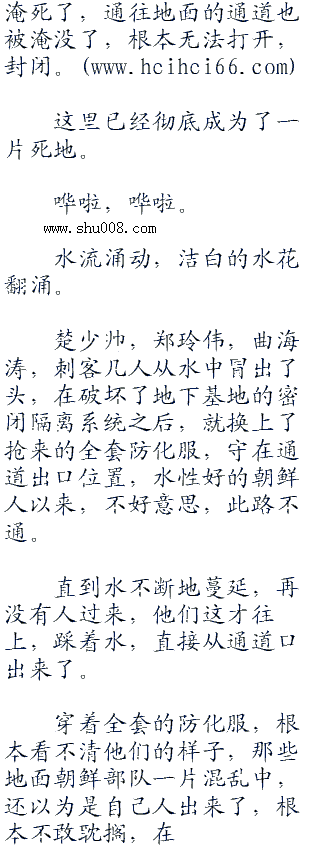 淹死了，通往地面的通道也
被淹没了，根本无法打开，
封闭。(www.hcihci66.com)
这里已经彻底成为了一
片死地。
哗啦，哗啦。
www.shu008.com
水流涌动，洁白的水花
翻涌。
楚少帅，郑玲伟，曲海
涛，刺客几人从水中冒出了
头，在破坏了地下基地的密
闭隔离系统之后，就换上了
抢来的全套防化服，守在通
道出口位置，水性好的朝鲜
人以来，不好意思，此路不
通。
直到水不断地蔓延，再
没有人过来，他们这才往
上，踩着水，直接从通道口
出来了。
穿着全套的防化服，根
本看不清他们的样子，那些
地面朝鲜部队一片混乱中，
还以为是自己人出来了，根
本不敢耽搁，在